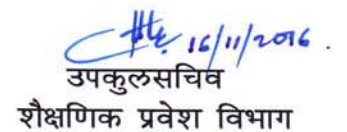 16/11/2016.
उपकुलसचिव
शैक्षणिक प्रवेश विभाग